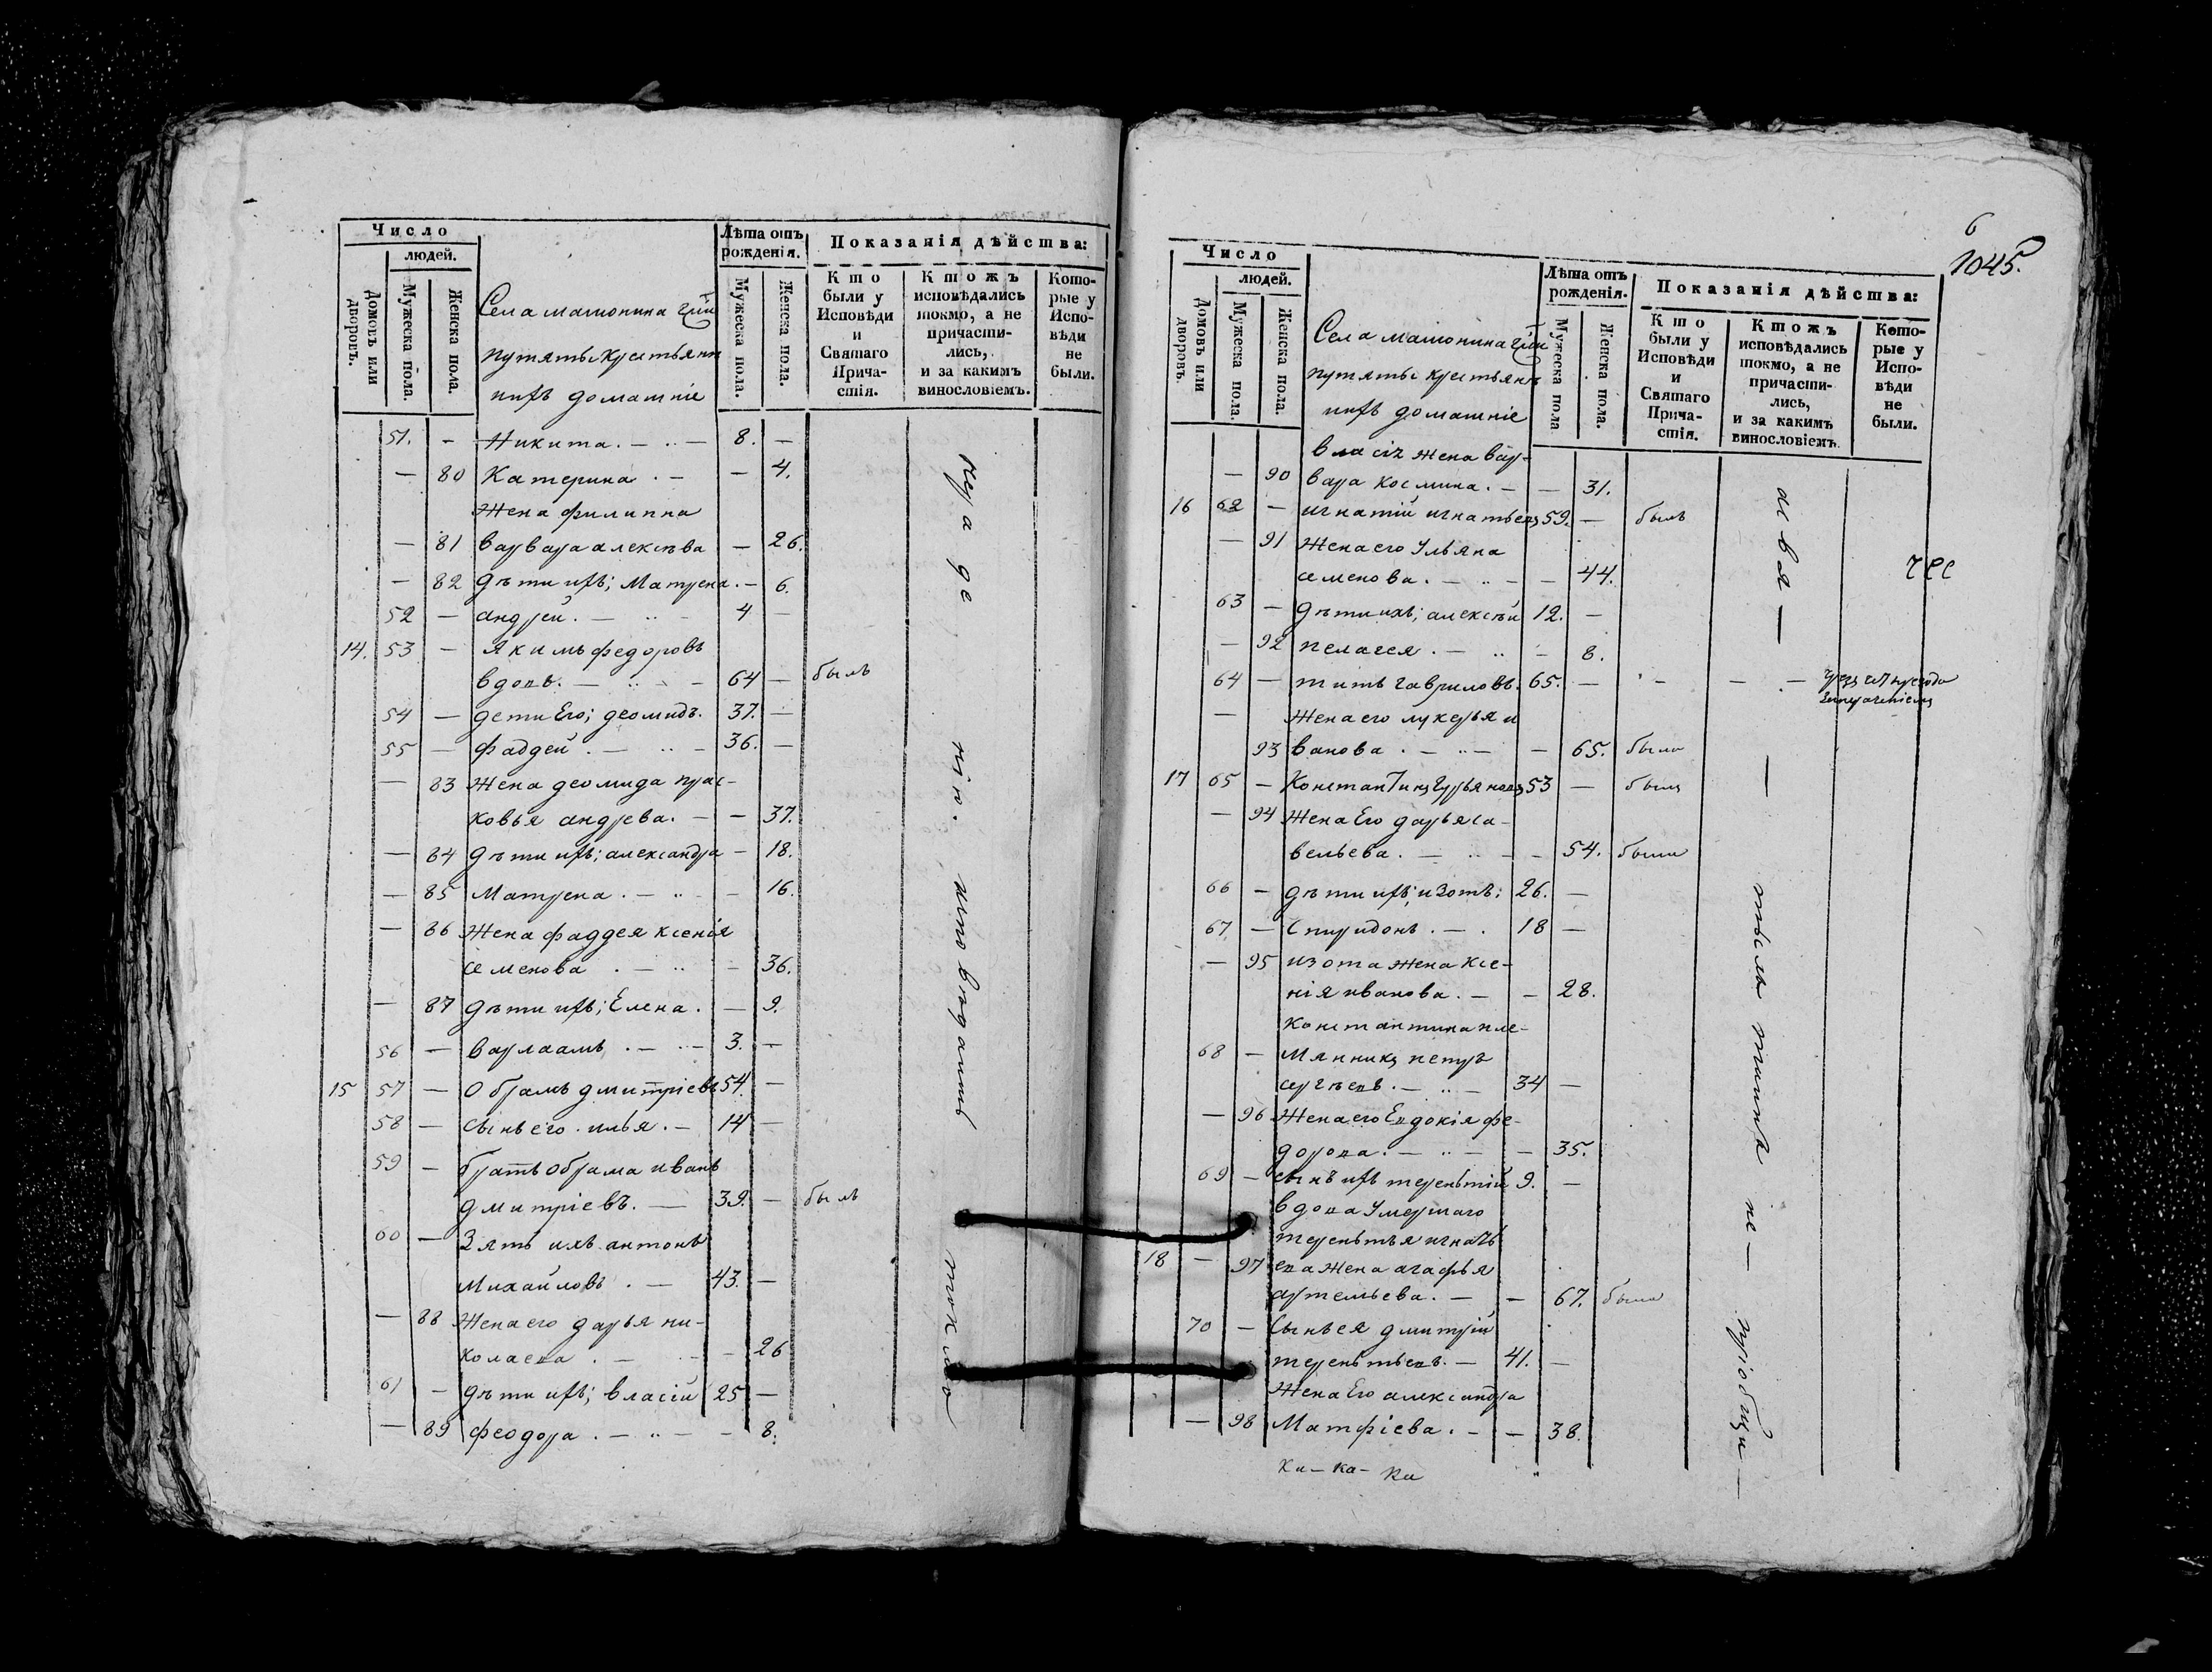 Число
людей.
Домовъ или дворовъ.
Мужеска пола.
Женска пола.
Села матюнина
крестьяне
ихъ домашніе
Лѣта отъ рожденія.
Мужеска пола.
Женска пола.
Показанія дѣйства:
Кто были у Исповѣди и Святаго Причастія.
Ктожъ исповѣдались токмо, а не причастились, и за какимъ винословіемъ.
Которые у Исповѣди не были.
51. - Никита. - 8. -
- 80 Катерина. - - 4.
Жена филиппа
- 81 варвара алексѣва - 26.
- 82 дѣти ихъ; Матрена. - 6.
52 - андрей. - 4 -
14. 53 - Якимъ федоровъ
вдовъ. - 64 - былъ
54 - дети Его; деомидъ. 37. -
55 - фаддей. - 36. -
- 83 Жена деомида прас-
ковья андрева. - - 37.
- 84 дѣти ихъ; александра - 18.
- 85 Матрена. - - 16.
- 86 Жена фаддея ксенія
семенова. - - 36.
- 87 дѣти ихъ; Елена. - 9.
56 - варлаамъ. - 3. -
15 57 - Обрамъ дмитріевъ 54. -
58 - сынъ его. илья. - 14 -
59 - братъ обрама иванъ
дмитріевъ. - 39. - былъ
60 - Зять ихъ антонъ
Михайловъ. - 43. -
- 88 Жена его дарья ни-
колаева. - - 26
61 - дѣти ихъ; власій 25 -
- 89 феодора. - - 8.
6
1045.
Число
людей.
Домовъ или дворовъ.
Мужеска пола.
Женска пола.
Села матюнина
крестьяне
ихъ домашніе
Лѣта отъ рожденія.
Мужеска пола
Женска пола.
Показанія дѣйства:
Кто были у Исповѣди и Святаго Причастія.
Ктожъ исповѣдались токмо, а не причастились, и за какимъ винословіемъ
Которые у Исповѣди не были.
власія жена вар-
- 90 вара космина. - - 31.
16 62 - игнатій игнатьевъ 59. - былъ
- 91 Жена его Ульяна
семенова. - - 44.
63 - дѣти ихъ; алексѣй 12. -
- 92 пелагея. - - 8.
64 - титъ гавриловъ. 65. -
- Жена его лукерья и
93 ванова. - - 65. была
17 65 - Константинъ гурьяновъ 53 - былъ
- 94 Жена Его дарья са-
вельева. - - 54. была
66 - дѣти ихъ; изотъ: 26. -
67. - Спиридонъ. - 18 -
- 95 изота жена ксе-
нія иванова. - - 28.
константина пле-
68 - мянникъ петръ
сергѣевъ. - 34 -
- 96 Жена его Евдокія фе-
дорова. - - 35.
69 - сынъ ихъ терентій 9. -
вдова Умершаго
терентья игнать
18 - 97 ева жена агафья
артемьева. - - 67. была
70 - Сынъ ея дмитрій
терентьевъ. - 41. -
Жена Его александра
- 98 Матфіева. - - 38.